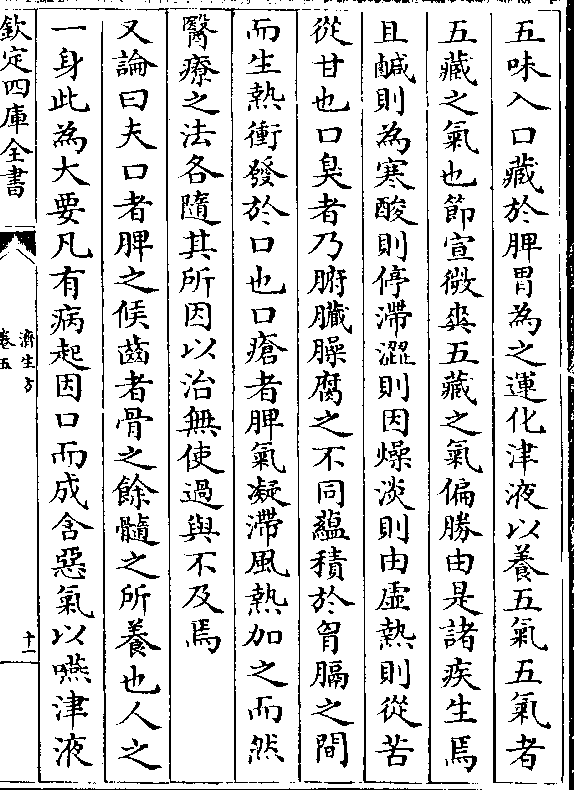 五味入口藏於脾胃為之運化津液以養五氣五氣者
五藏之氣也節宣微爽五藏之氣偏勝由是諸疾生焉
且鹹則為寒酸則停滯澀則因燥淡則由虛熱則從苦
從甘也口臭者乃腑臟臊腐之不同蘊積於胷膈之間
而生熱衝發於口也口瘡者脾氣凝滯風熱加之而然
醫療之法各隨其所因以治無使過與不及焉
又論曰夫口者脾之候齒者骨之餘髓之所養也人之
一身此為大要凡有病起因口而成含惡氣以嚥津液
欽定四庫全書
濟生方
卷五
十一